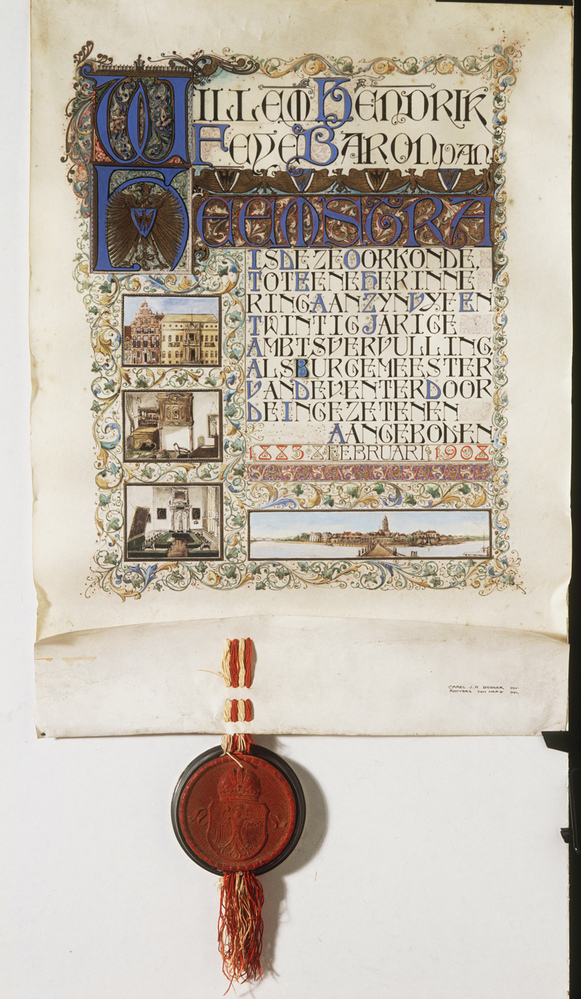 WILLEM HENDRIK
FEYE BARON VAN
HEEMSTRA
IS DEZE OORKONDE,
TOT EENE HERINNE
RING AAN ZYN VYF EN
TWINTIG JARIGE
AMBTSVERVULLING
ALS BURGEMEESTER
VAN DEVENTER DOOR
DE INGEZETENEN
AANGEBODEN
1883 X FEBRUARI 1908
CAREL J.A.